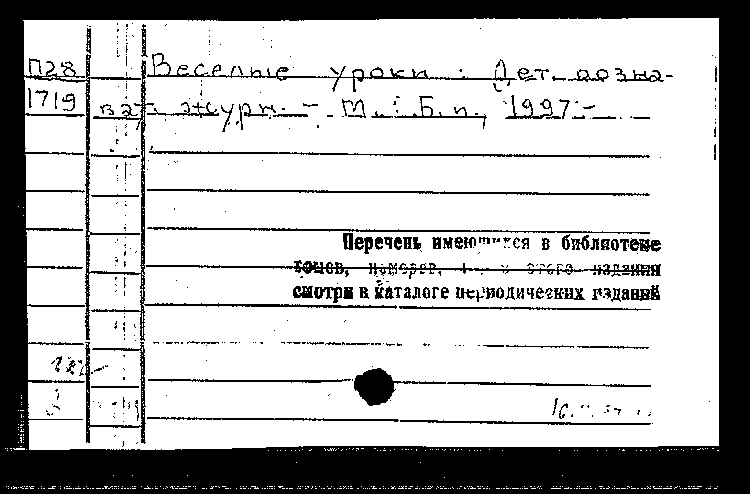 П28 Веселые уроки : Дет. позна-
1719 ват. журн. – М. : Б.и., 1997.–
Перечень имеющихся в библиотеке
томов, номеров, этого издания
смотри в каталоге периодических изданий